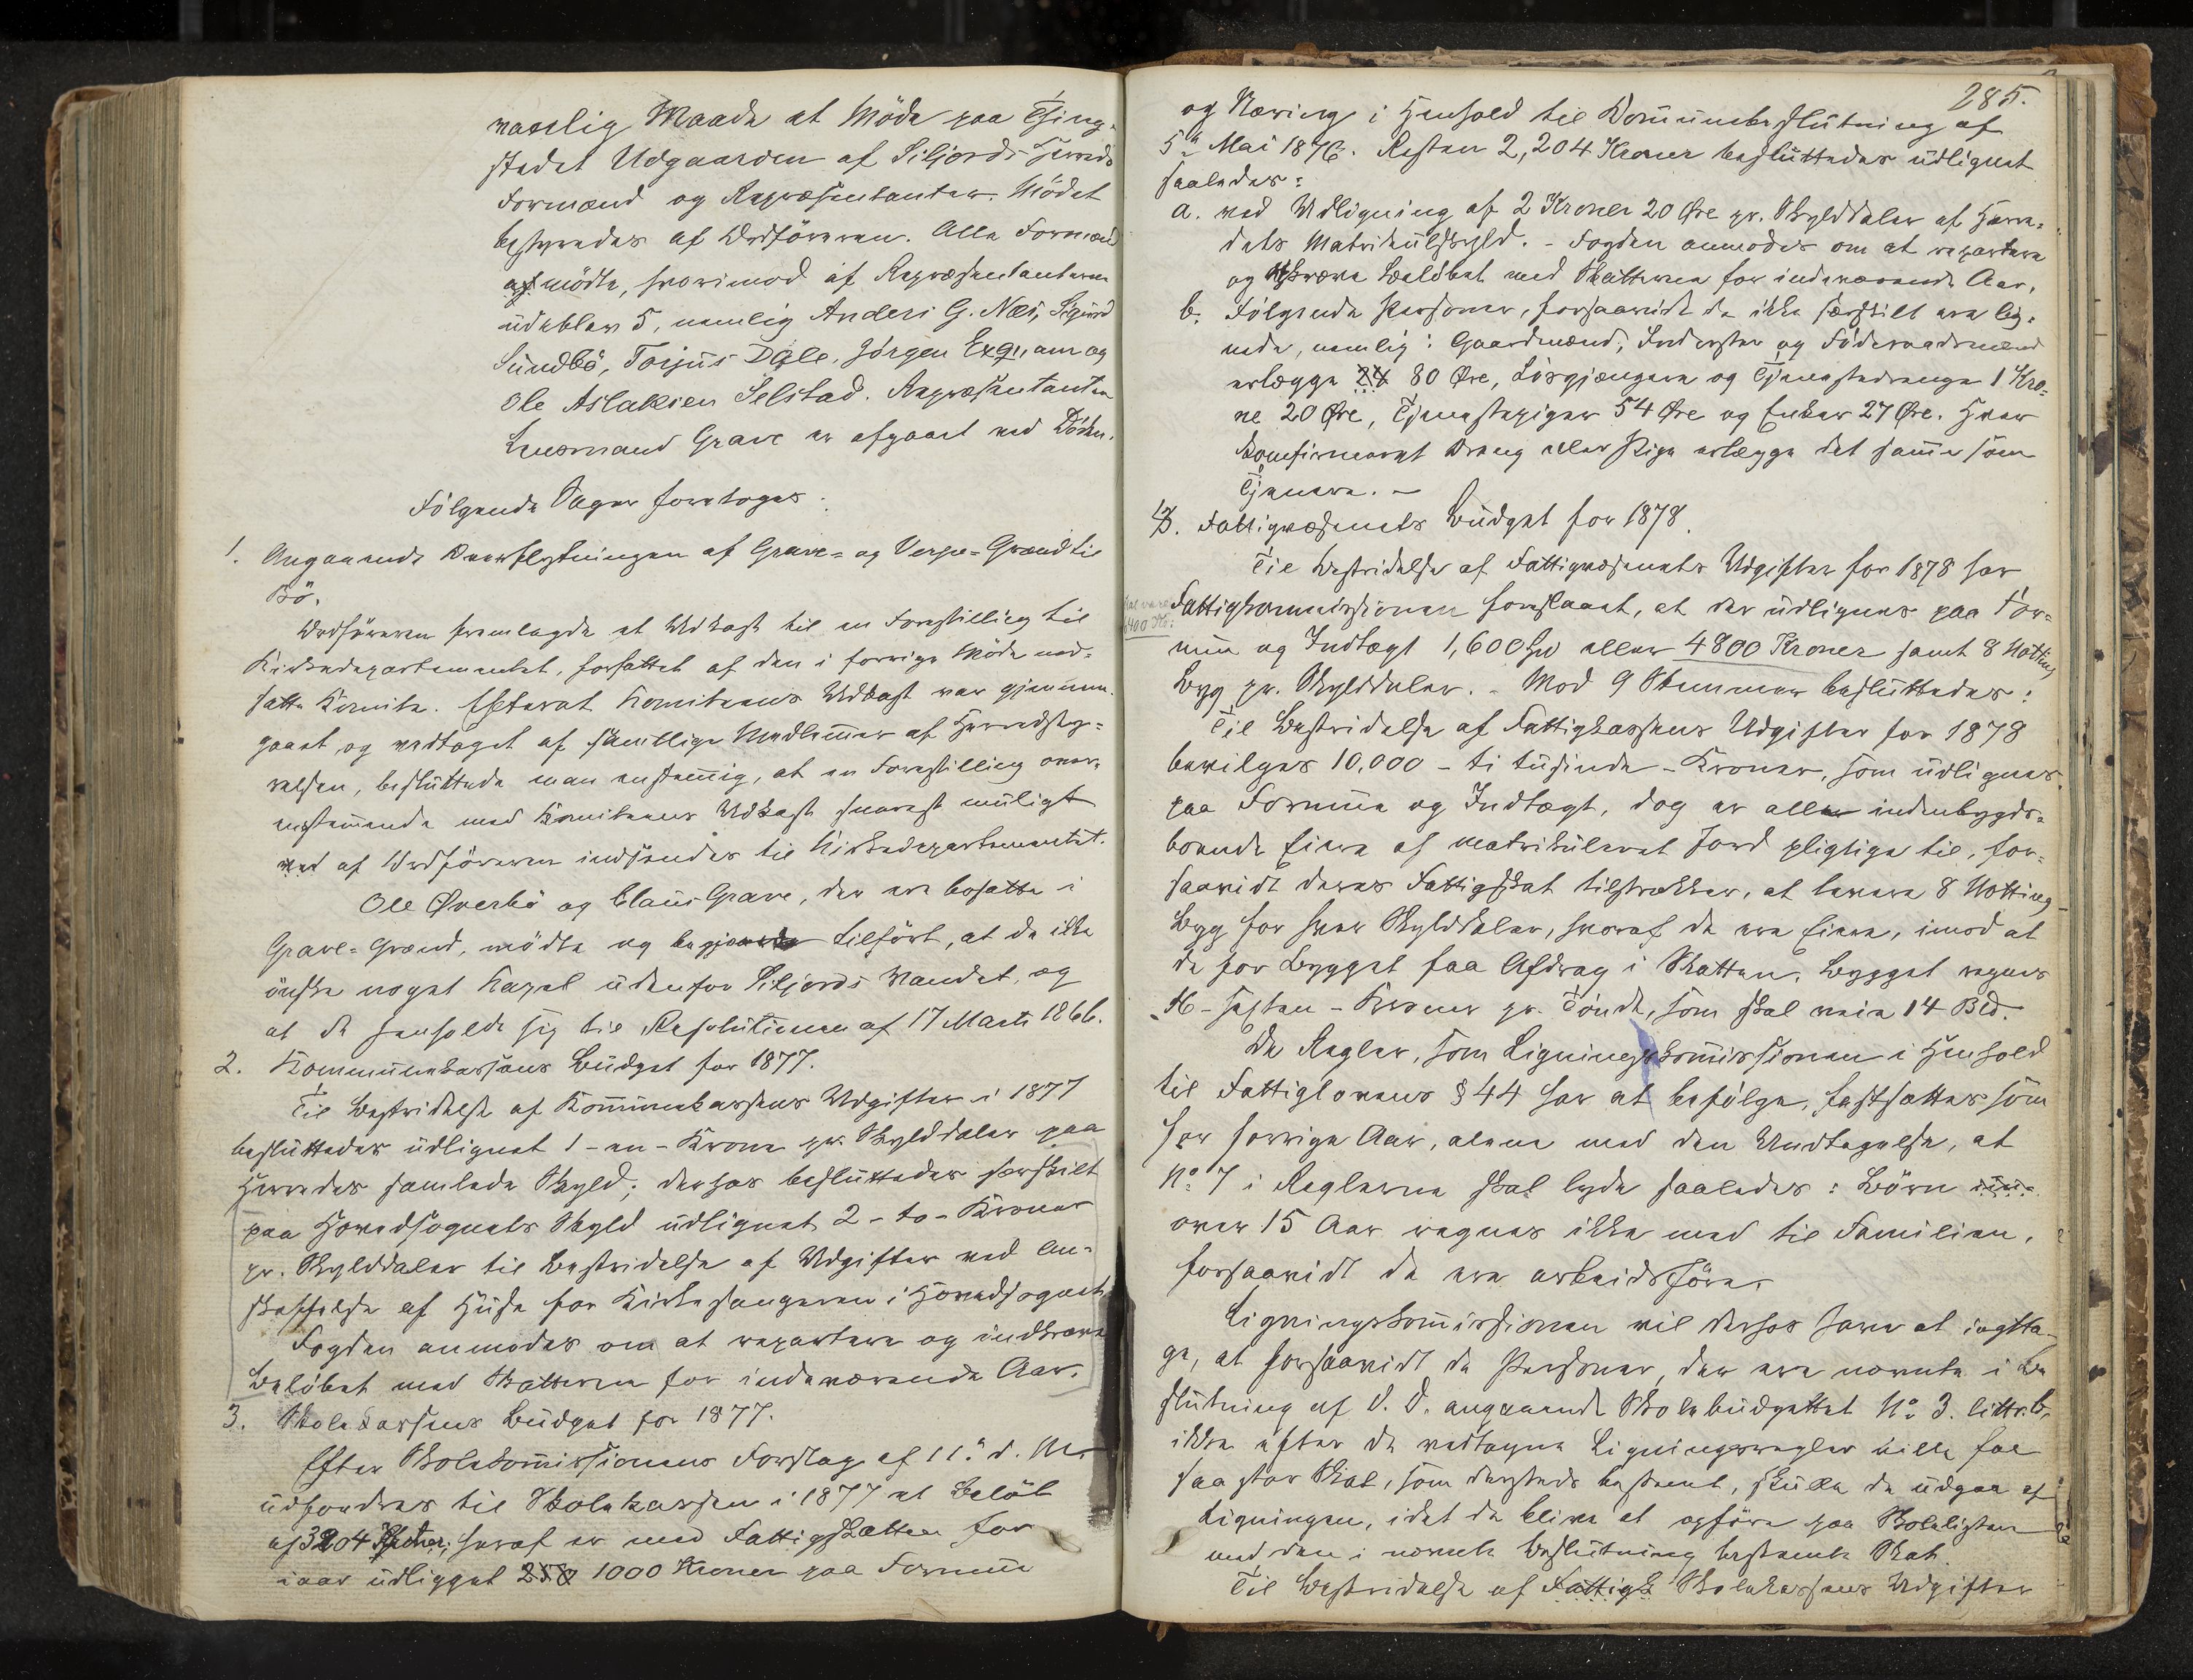 vanlig Maade at Møde paa Thing-
stedet Udgaarden af Siljords Herreds
Formænd og Repræsentanter. Mødet
bestyredes af Ordføreren. Alle Formænd
mødte, hvorimod af Repræsentanterne
udeblev 5, nemlig Anders G. Næs, Sigurd
Sundbö, Torjus Dale, Jörgen Exquam og
Ole Aslaksen Selstad. Repræsentanten
Grave er afgaaet ved Döden.
Følgende Sager foretoges:
1. Angaaende Overflytningen af Grave- og Verpe-Grænd til
Bö.
Ordføreren fremlagde et Udkast til en Forestilling til
Kirkedepartementet, forfattet af den i forrige Møde ned-
satte Komite. Efterat Komiteens Udkast var gjennem-
gaaet og vedtaget af samtlige Medlemmer af Herredsty-
relsen, besluttede man enstemmig, at en Forestilling over-
enstemmende med Komiteens Udkast snarest muligt
ved af Ordføreren indsendes til Kirkedepartementet.
Ole Øverbö og Claus Grave, der ere bosatte i
Grave-Grænd, mödte og begjærede tilført, at de ikke
ønske noget Kapel udenfor Siljords Vandet, og
at de henholde sig til Resolutionen af 17 Marts 1866.
2. Kommunekassens Budget for 1877.
Til Bestridelse af Kommunekassens Udgifter i 1877
besluttedes udlignet 1 - en - Krone pr. Skylddaler paa
Herredets samlede Skyld; derhos besluttedes særskilt
paa Hovedsognets Skyld udlignet 2 - to - Kroner
pr. Skylddaler til Bestridelse af Udgifter ved An-
skaffelse af Huse for Kirkesangeren i Hovedsognet.
Fogden anmodes om at repartere og indkræve
Beløbet med Skatterne for indeværende Aar.
3. Skolekassens Budget for 1877.
Efter Skolekommissionens Forslag af 11te d. M.
udfordres til Skolekassen i 1877 et Beløb
af 3204 Kroner; heraf er med Fattigskatten for
iaar udlignet 250 1000 Kroner paa Formue
285.
og Næring i Henhold til Kommunebeslutning af
5te Mai 1876. Resten 2,204 Kroner besluttedes udlignet
saaledes:
a. ved Udligning af 2 Kroner 20 Øre pr. Skylddaler af Herre-
dets Matrikulskyld. - Fogden anmodes om at repartere
og opkræve Beløbet med Skatterne for indeværende Aar.
b. Følgende Personer, forsaavidt de ikke særskilt ere lig-
nede, nemlig: Gaardmænd, Inderster og Föderaadsmænd
erlægge 24 80 Øre, Løsgjængere og Tjenestedrenge 1 Kro-
ne 20 Øre, Tjenestepiger 54 Øre og Enker 27 Øre. Hver
konfirmeret Dreng eller Pige erlægge det samme som
Tjenere. -
Fattigvæsenets Budget for 1878.
Til Bestridelse af Fattigvæsenets Udgifter for 1878 har
Fattigkommissionen foreslaaet, at der udlignes paa For-
skal være
6400 Kr:
mue og Indtægt 1,600 Spd eller 4800 Kroner samt 8 Notting
Byg pr. Skylddaler. - Mod 9 Stemmer besluttedes:
Til Bestridelse af Fattigkassens Udgifter for 1878
bevilges 10,000 - ti tusinde - Kroner, som udlignes
paa Formue og Indtægt, dog er alle indenbygds-
boende Eiere af matrikuleret Jord pligtige til, for-
saavidt deres Fattigskat tilstrækker, at levere 8 Notting
Byg for hver Skylddaler, hvoraf de ere Eiere, imod at
de for Bygget faa Afdrag i Skatten. Bygget regnes
16 - sexten - Kroner pr. Tönde, som skal veie 14 Bld.
De Regler, som Ligningskommissionen i Henhold
til Fattiglovens § 44 har at befølge, fastsattes som
for forrige Aar, alene med den Undtagelse, at
No. 7 i Reglerne skal lyde saaledes: Børn
over 15 Aar regnes ikke med til Familien,
forsaavidt de ere arbeidsføre.
Ligningskommissionen vil derhos have at iagtta-
ge, at forsaavidt de Personer, der ere nævnte i Be-
slutning af D. D. angaaende Skolebudgettet No. 3. littr. b,
ikke efter de vedtagne Ligningsregler ville faa
saa stor Skat, som dersteds bestemt, skulle de udgaa af
Ligningen, idet de blive at opføre paa Skolelisten
med den i nævnte Beslutning bestemte Skat.
Til Bestridelse af Fattigk Skolekassens Udgifter